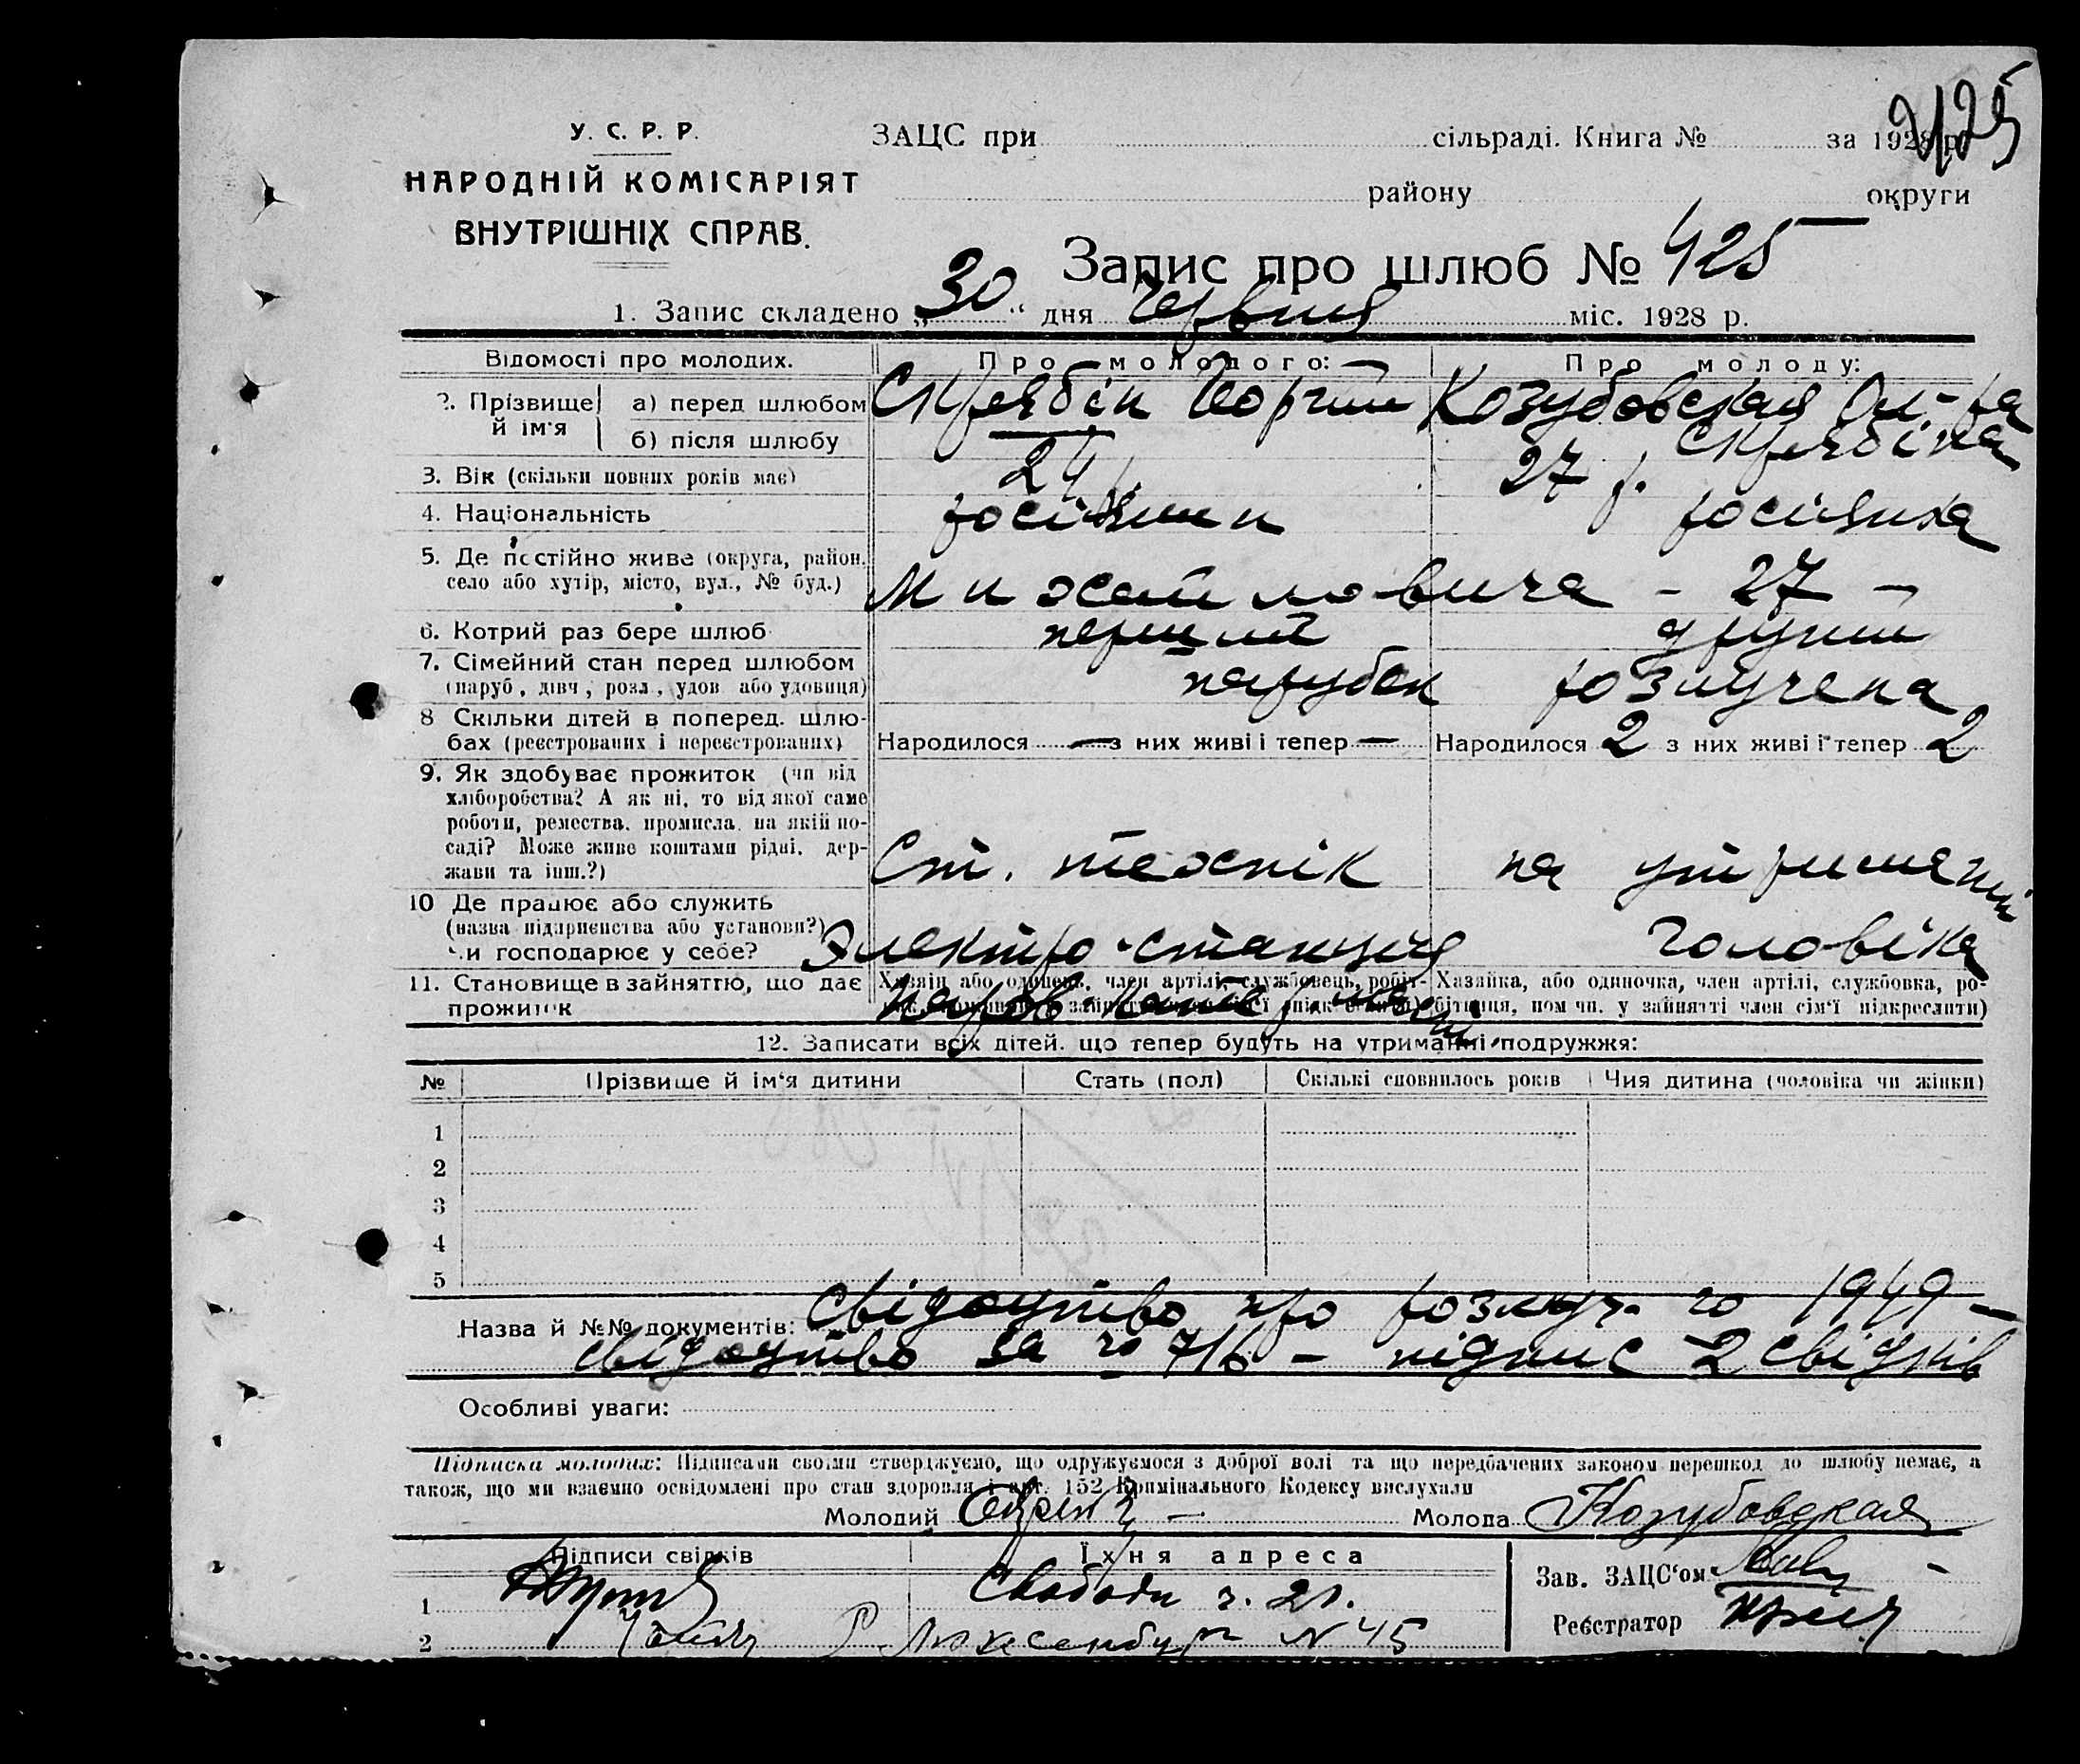 425
У. С. Р. Р.
НАРОДНІЙ КОМІСАРІЯТ
ВНУТРІШНІХ СПРАВ.
ЗАЦС при сільраді. Книга № за 1928 р.
району округи
Запис про шлюб № 425
1. Запис складено „30“ дня Червня міс. 1928 р.
Відомості про молодих. Про молодого: Про молоду:
2. Прізвище й ім'я
а) перед шлюбом Скрябін Георгий Козубовская Ол-ра
б) після шлюбу Скрябіна
3. Вік (скільки повних років має) 24 27 р.
4. Національність росіянин росіянка
5. Де постійно живе (округа, район,
село або хутір, місто, вул., № буд.) Михайловича - 27 -
6. Котрий раз бере шлюб перший другий
7. Сімейний стан перед шлюбом
(паруб, дівч, розл., удов або удовиця) парубок розлучена
8 Скільки дітей в поперед. шлю-
бах (реєстрованих і нереєстрованих) Народилося — з них живі і тепер — Народилося 2 з них живі і тепер 2
9. Як здобуває прожиток (чи від
хліборобства? А як ні, то від якої саме
роботи, ремества, промисла, на якій по-
саді? Може живе коштами рідні, дер-
жави та інш.?) Ст. на утриманні
10 Де працює або служить
(назва підприємства або установи?)
чи господарює у себе? Электро-станция чоловіка
11. Становище в зайняттю, що дає
прожиток
Хазяїн або одинець, член артілі, службовець, робіт-
Хазяйка, або одиночка, член артілі, службовка, ро-
бітниця, пом чи. у зайнятті член сім'ї підкреслити)
12. Записати всіх дітей, що тепер будуть на утриманні подружжя:
№ Прізвище й ім'я дитини Стать (пол) Скількі сповнилось років Чия дитина (чоловіка чи жінки)
1
2
3
4
5
Назва й №№ документів: свідоцтво про розлуч. № 1949 —
свідоцтво за № 716 — підпис 2 свідків
Особливі уваги:
Підписка молодих: Підписами своїми стверджуємо, що одружуємося з доброї волі та що передбачених законом перешкод до шлюбу немає, а
також, що ми взаємно освідомлені про стан здоровля і арт. 152 Кримінального Кодексу вислухали
Молодий Молода Козубовская
Підписи свідків Їхня адреса
Зав. ЗАЦС'ом
1 Свободи 21.
Реєстратор
2 Р. Люксембург N 45